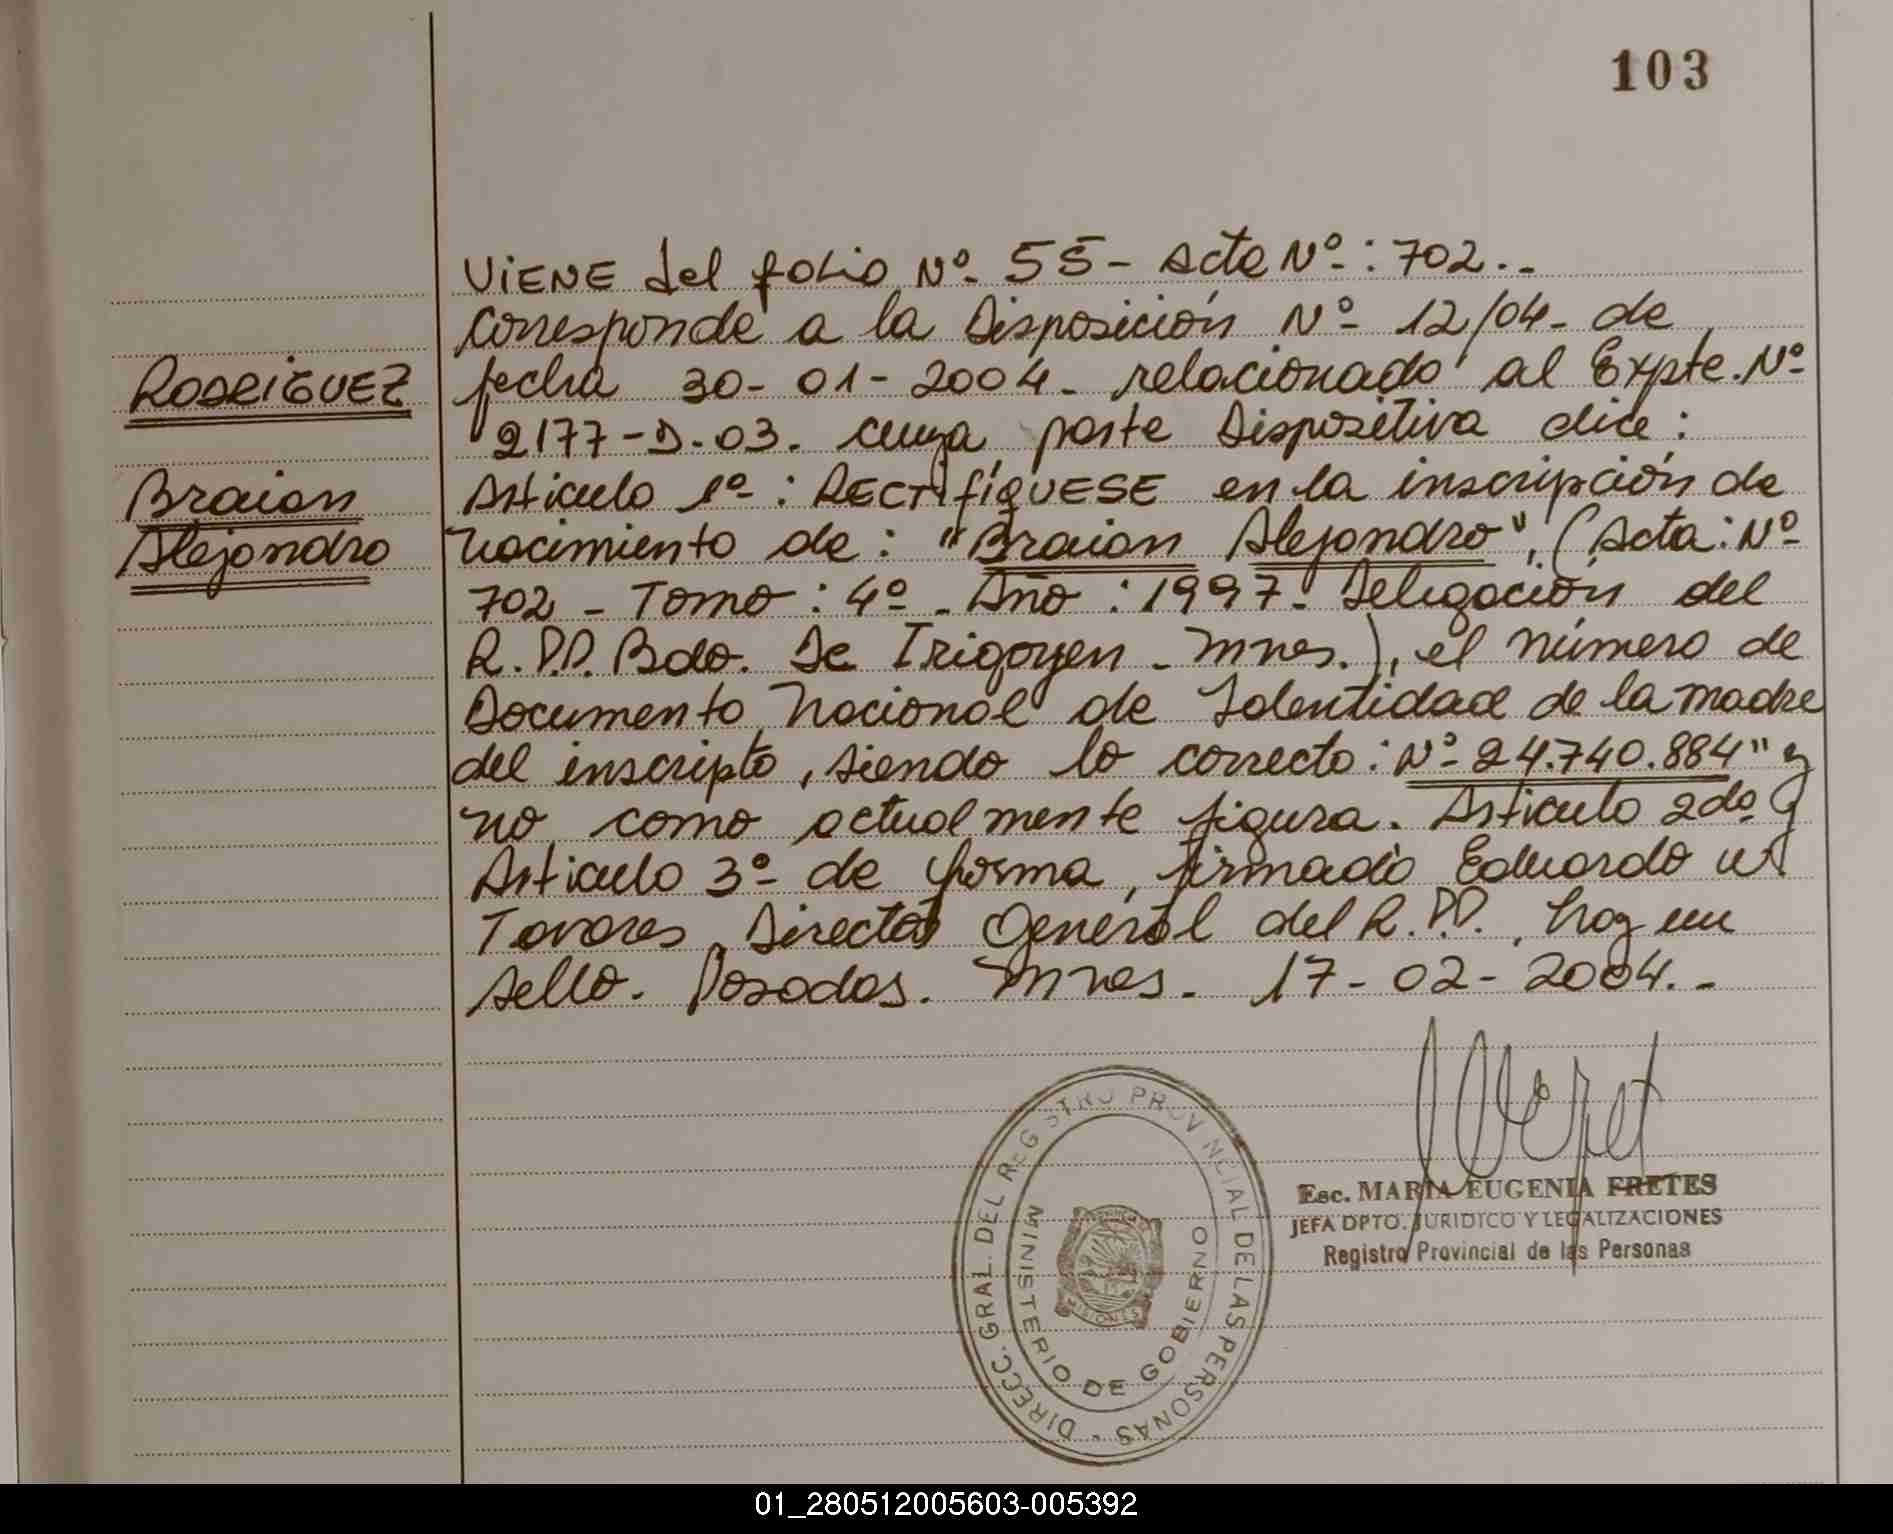 103
RODRIGUEZ
Braian
Alejandro
VIENE del folio Nº 55- Acta Nº: 702.-
Corresponde a la Disposición Nº 12/04- de
fecha 30-01-2004- relacionado al Expte. Nº
2177-D-03. cuya parte Dispositiva dice:
Articulo 1º: RECTIFÍQUESE en la inscripción de
nacimiento de: "Braian Alejandro", (Acta: Nº
702 - Tomo: 4º - Año: 1997- Delegación del
R.P.P. Bdo. De Irigoyen - Mnes.), el número de
Documento Nacional de Identidad de la madre
del inscripto, siendo lo correcto: Nº 24.740.884" y
no como actualmente figura. Articulo 2do y
Articulo 3º de forma, firmado Eduardo
Tavares, Director General del R.P.P., hay un
sello. Posadas. Mnes. 17-02-2004.-
Esc. MARIA EUGENIA FRETES
JEFA DPTO. JURIDICO Y LEGALIZACIONES
Registro Provincial de las Personas
DIRECC. GRAL. DEL REGISTRO PROVINCIAL DE LAS PERSONAS
MINISTERIO DE GOBIERNO
MISIONES
01_280512005603-005392